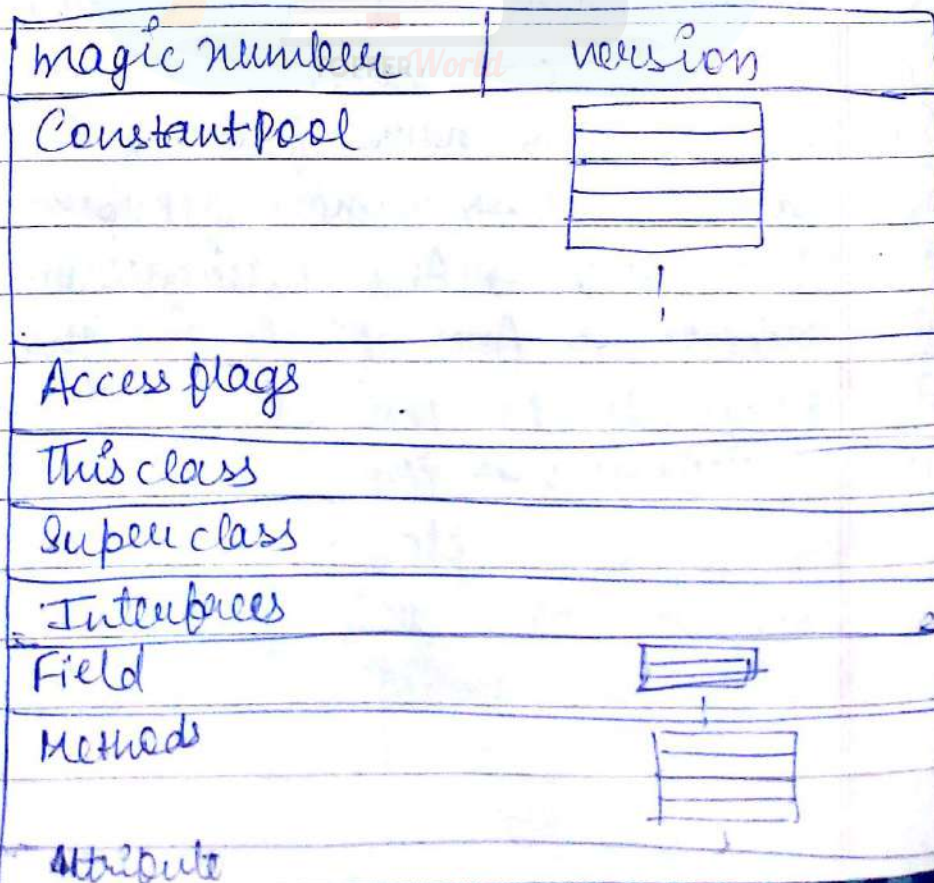 magic number version
Constant Pool
Access flags
This class
Super class
Interfaces
Field
Methods
Attribute